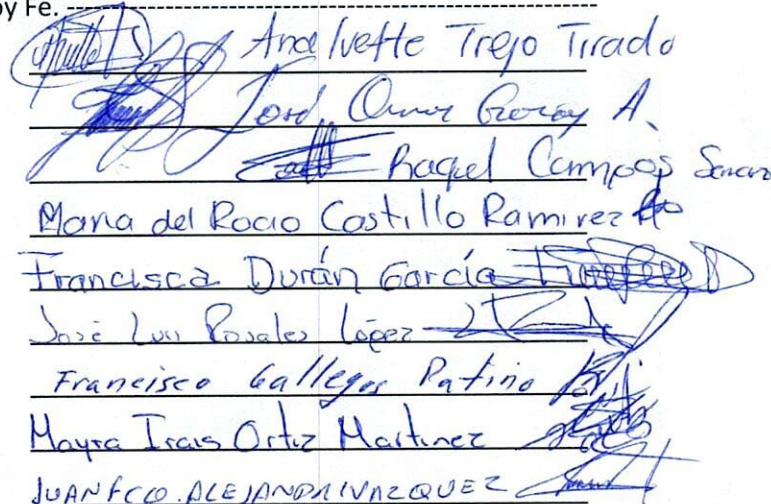 oy Fe. ----------
Ana Ivette Trejo Tirado
José Omar A.
Raquel Campos
Maria del Rocio Castillo Ramirez
Francisca Durán García
José Luis Rosales López
Francisco Gallegos Patiño
Mayra Irais Ortiz Martinez
JUAN FCO. VAZQUEZ